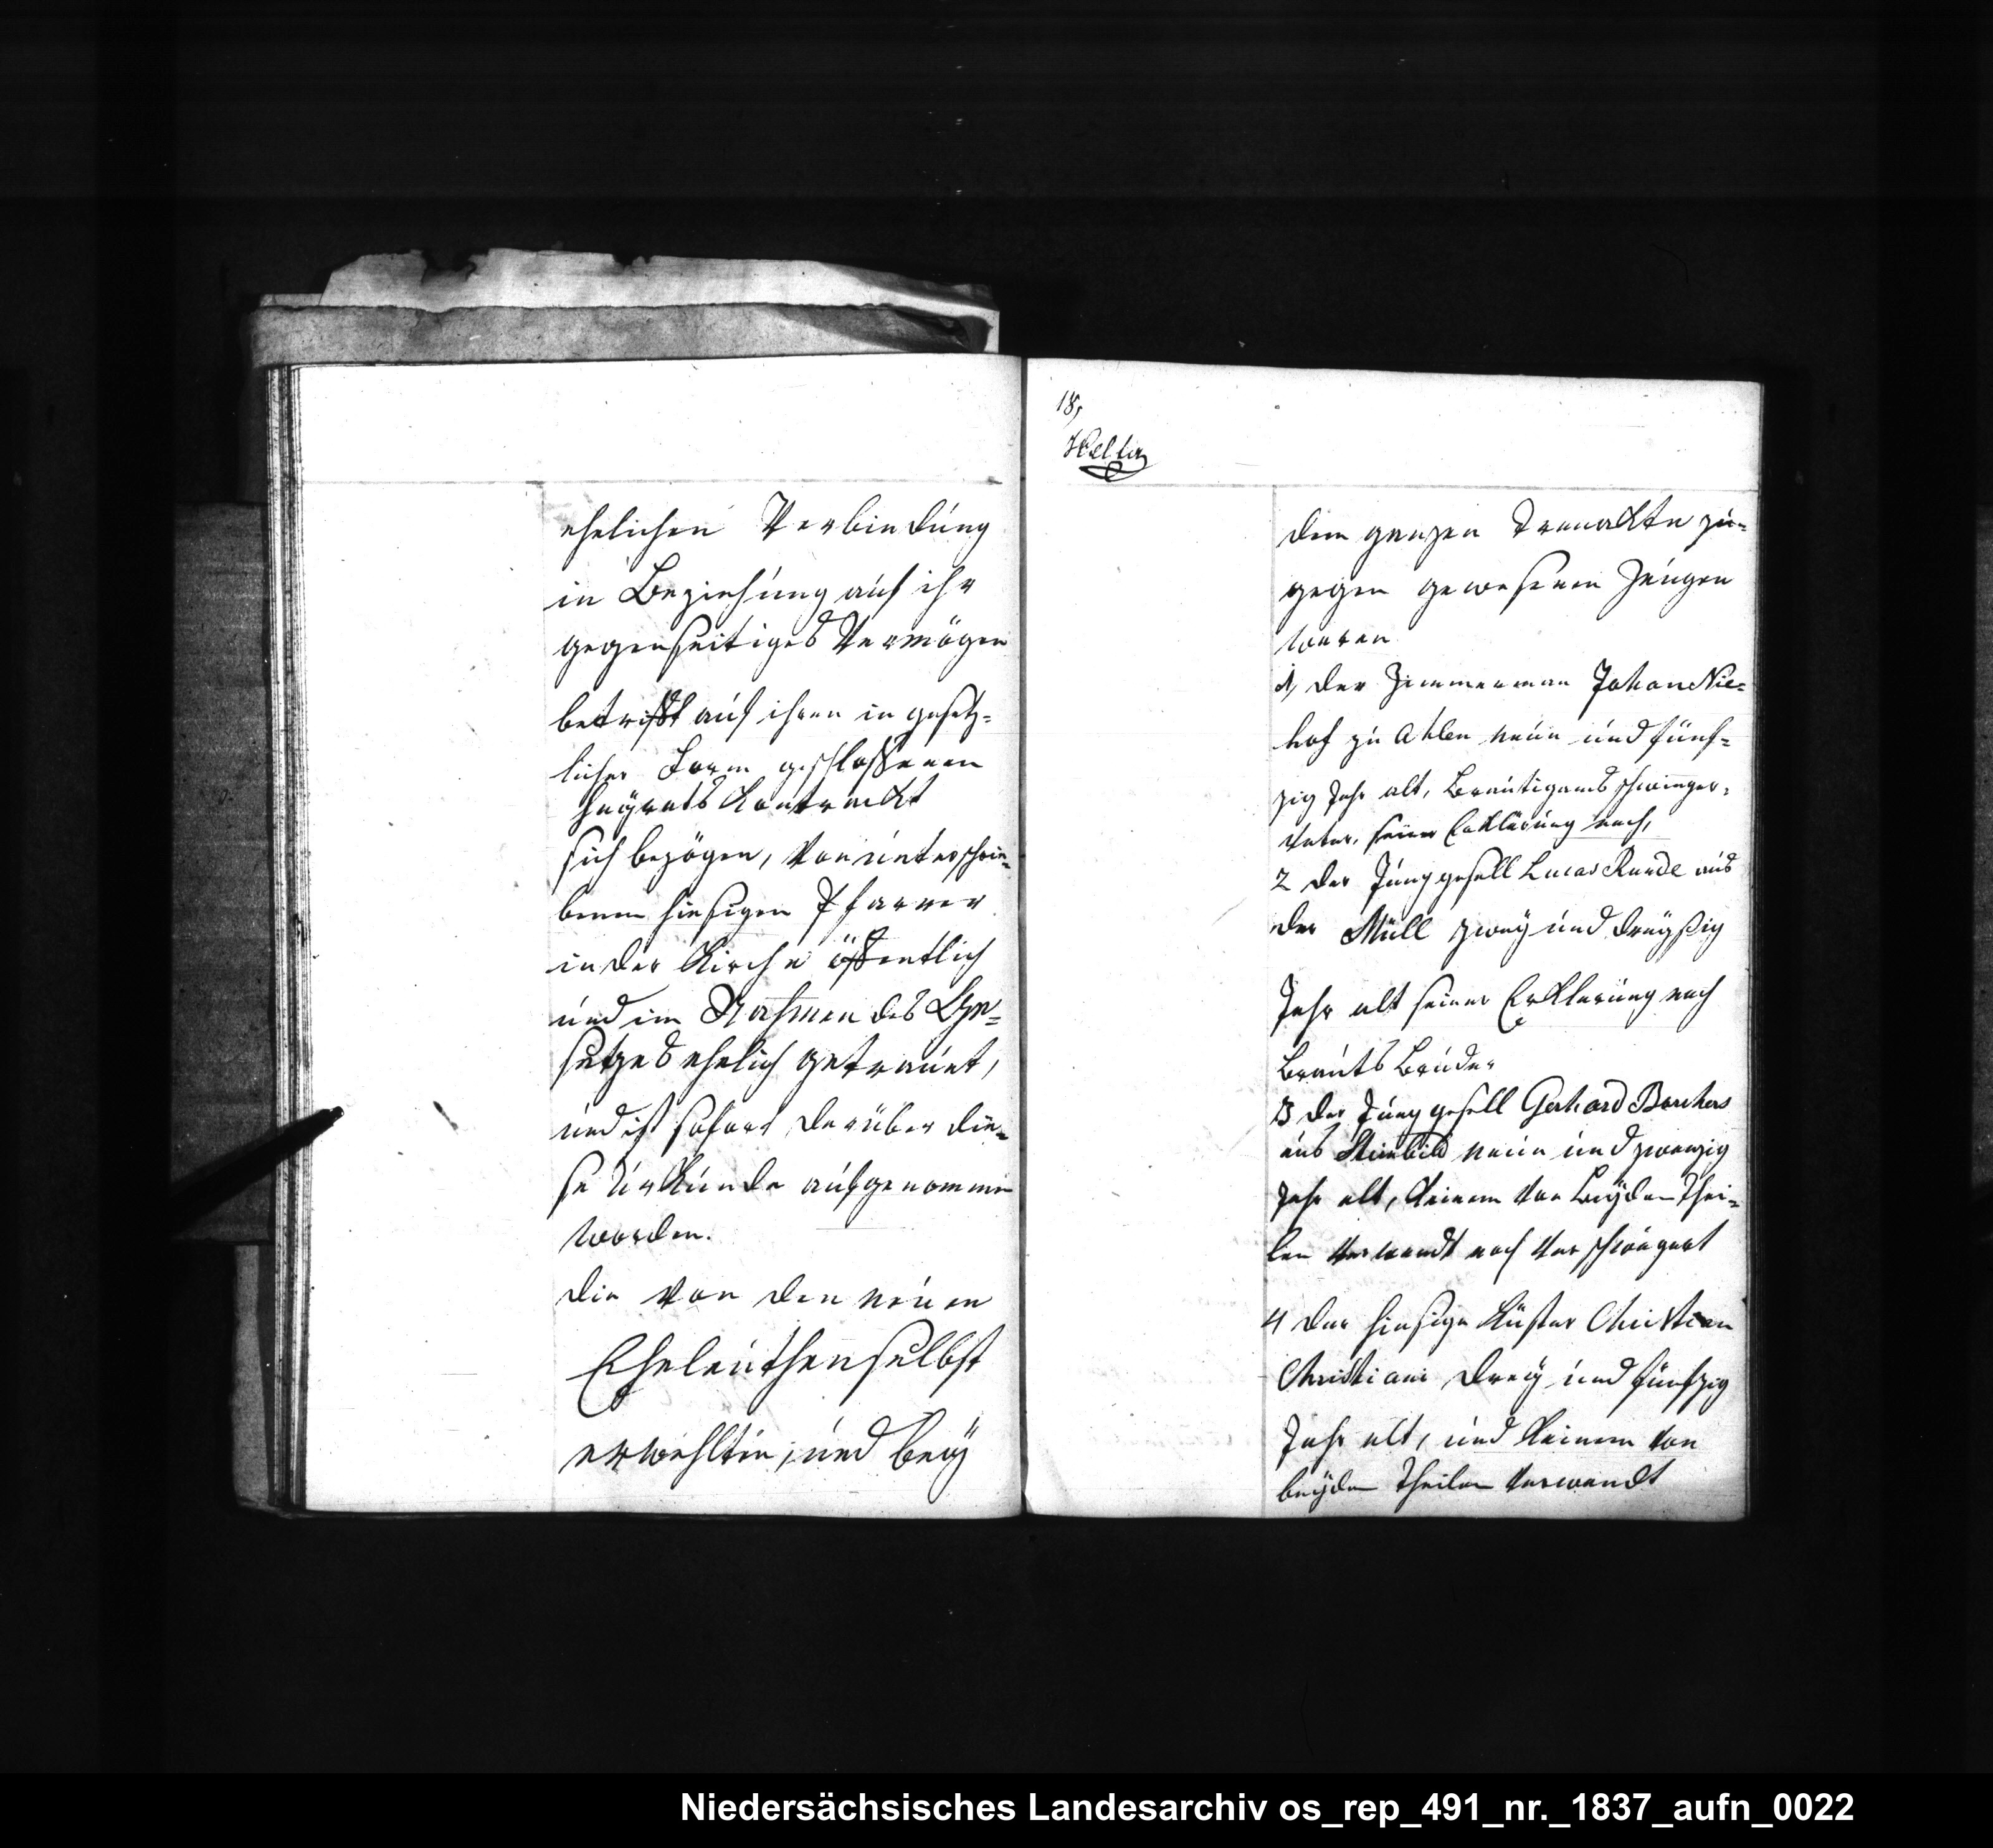 ehelichen Verbindung
in Beziehung auf ihr
gegenseitiges Vermögen
betrifft auf ihren in gesetz=
licher Form geschlossenen
Heyrats Kontrackt
sich bezögen, Von unterschrie=
benem hiesigen Pfarrer
in der Kirche öffentlich
und im Nahmen des Ge=
setzes ehelich getrauet,
und ist sofort darüber die=
se Urkunde aufgenommen
worden.
die Von den neuen
Eheleuthen selbst
erwehlten, und bey
18,
dem ganzen Trauakte zu=
gegen gewesenen Zeugen
waren
1, der Zimmerman Johan Nie=
hof zu Ahlen neun und fünf=
zig Jahr alt, Bräutigams schwieger=
Vater, seiner Erklärung nach,
2 der Junggesell Lucas Runde aus
der Müll zwey und dreyßig
Jahr alt seiner Erklärung nach
Brauts Bruder
3 der Junggesell Gerhard Borchers
aus Steinbild neun und zwanzig
Jahr alt, Keinem Von Beyden Thei=
len Verwandt noch Verschwägert
4 der hiesige Küster Christian
Christiani drey und fünfzig
Jahr alt, und Keinem Von
beyden Theilen Verwandt
Niedersächsisches Landesarchiv os_rep_491_nr._1837_aufn_0022